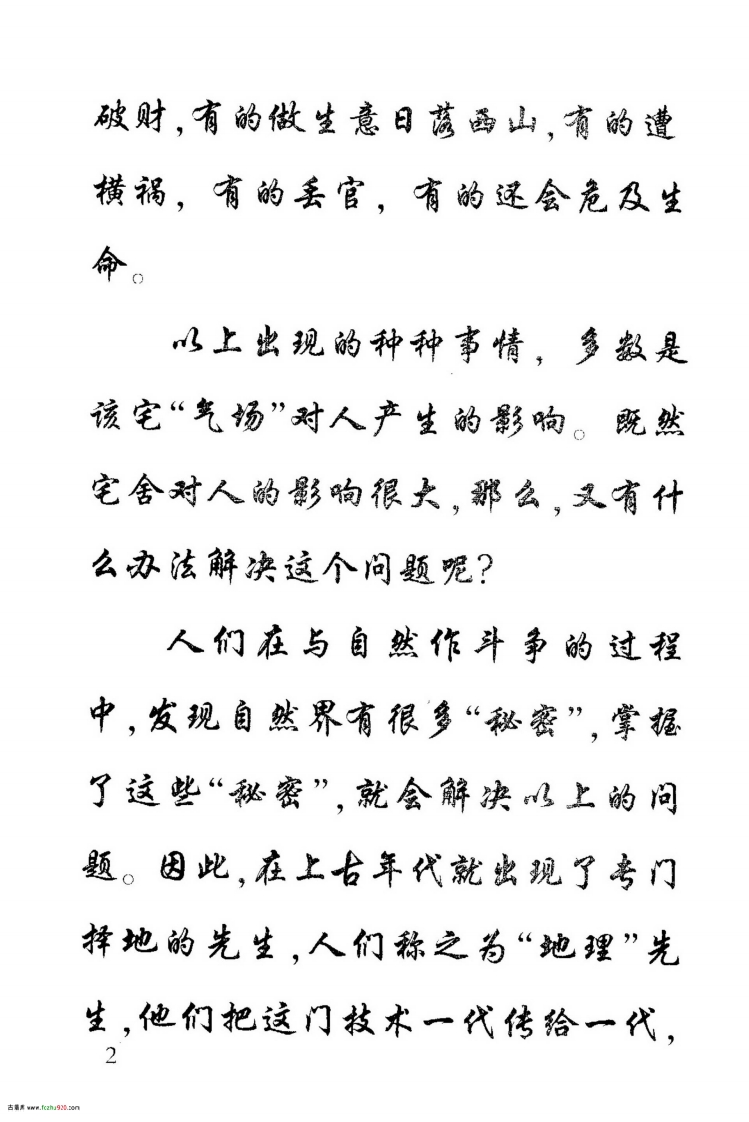 破财,有的做生意日落西山,有的遭
横祸，有的丢官，有的还会危及生
命。
以上出现的种种事情，多数是
该宅“气场”对人产生的影响。既然
宅舍对人的影响很大,那么,又有什
么办法解决这个问题呢?
人们在与自然作斗争的过程
中,发现自然界有很多“秘密”,掌握
了这些“秘密”,就会解决以上的问
题。因此,在上古年代就出现了专门
择地的先生,人们称之为“地理”先
生,他们把这门技术一代传给一代,
2
www.fozhu920.com